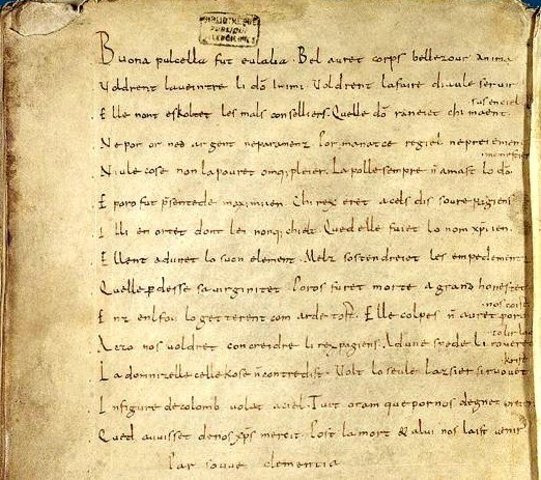 BIBLIOTHEQUE
PUBLIQUE
Buona pulcella fut eulalia. Bel auret corps bellezour anima
Voldrent laueintre li dõ inimi. Voldrent lafaire diaule seruir
susenciel
Elle nont eskoltet les mals conselliers. Quelle dõ raneiet chi maent
Ne por or ned argent neparamenz. Por manatce regiel nepreiement
Niule cose non lapouret omq pleier. La polle sempre ñ amast lo dõ
E poro fut p̃sentede maximiien. Chi rex eret acels dis soure pagiens
I lli enortet dont lei nonq chielt. Qued elle fuiet lo nom xp̃iien.
Ellent adunet lo suon element. Melz sostendreiet les empedementz
Quelle ꝑdesse sauirginitet. Poros furet morte a grand honestet
nos coist
Enz enlfou lo getterent com arde tost. Elle colpes ñ auret poro
A czo nos voldret concreidre li rex pagiens. Adune spede li roueret
krist
La domnizelle celle kose ñ contredist. Volt lo seule lazsier si ruouet
In figure decolomb volat aciel. Tuit oram que por nos degnet preier
Qued auuisset denos xp̃s mercit. Post la mort & alui nos laist uenir
Par souue clementia